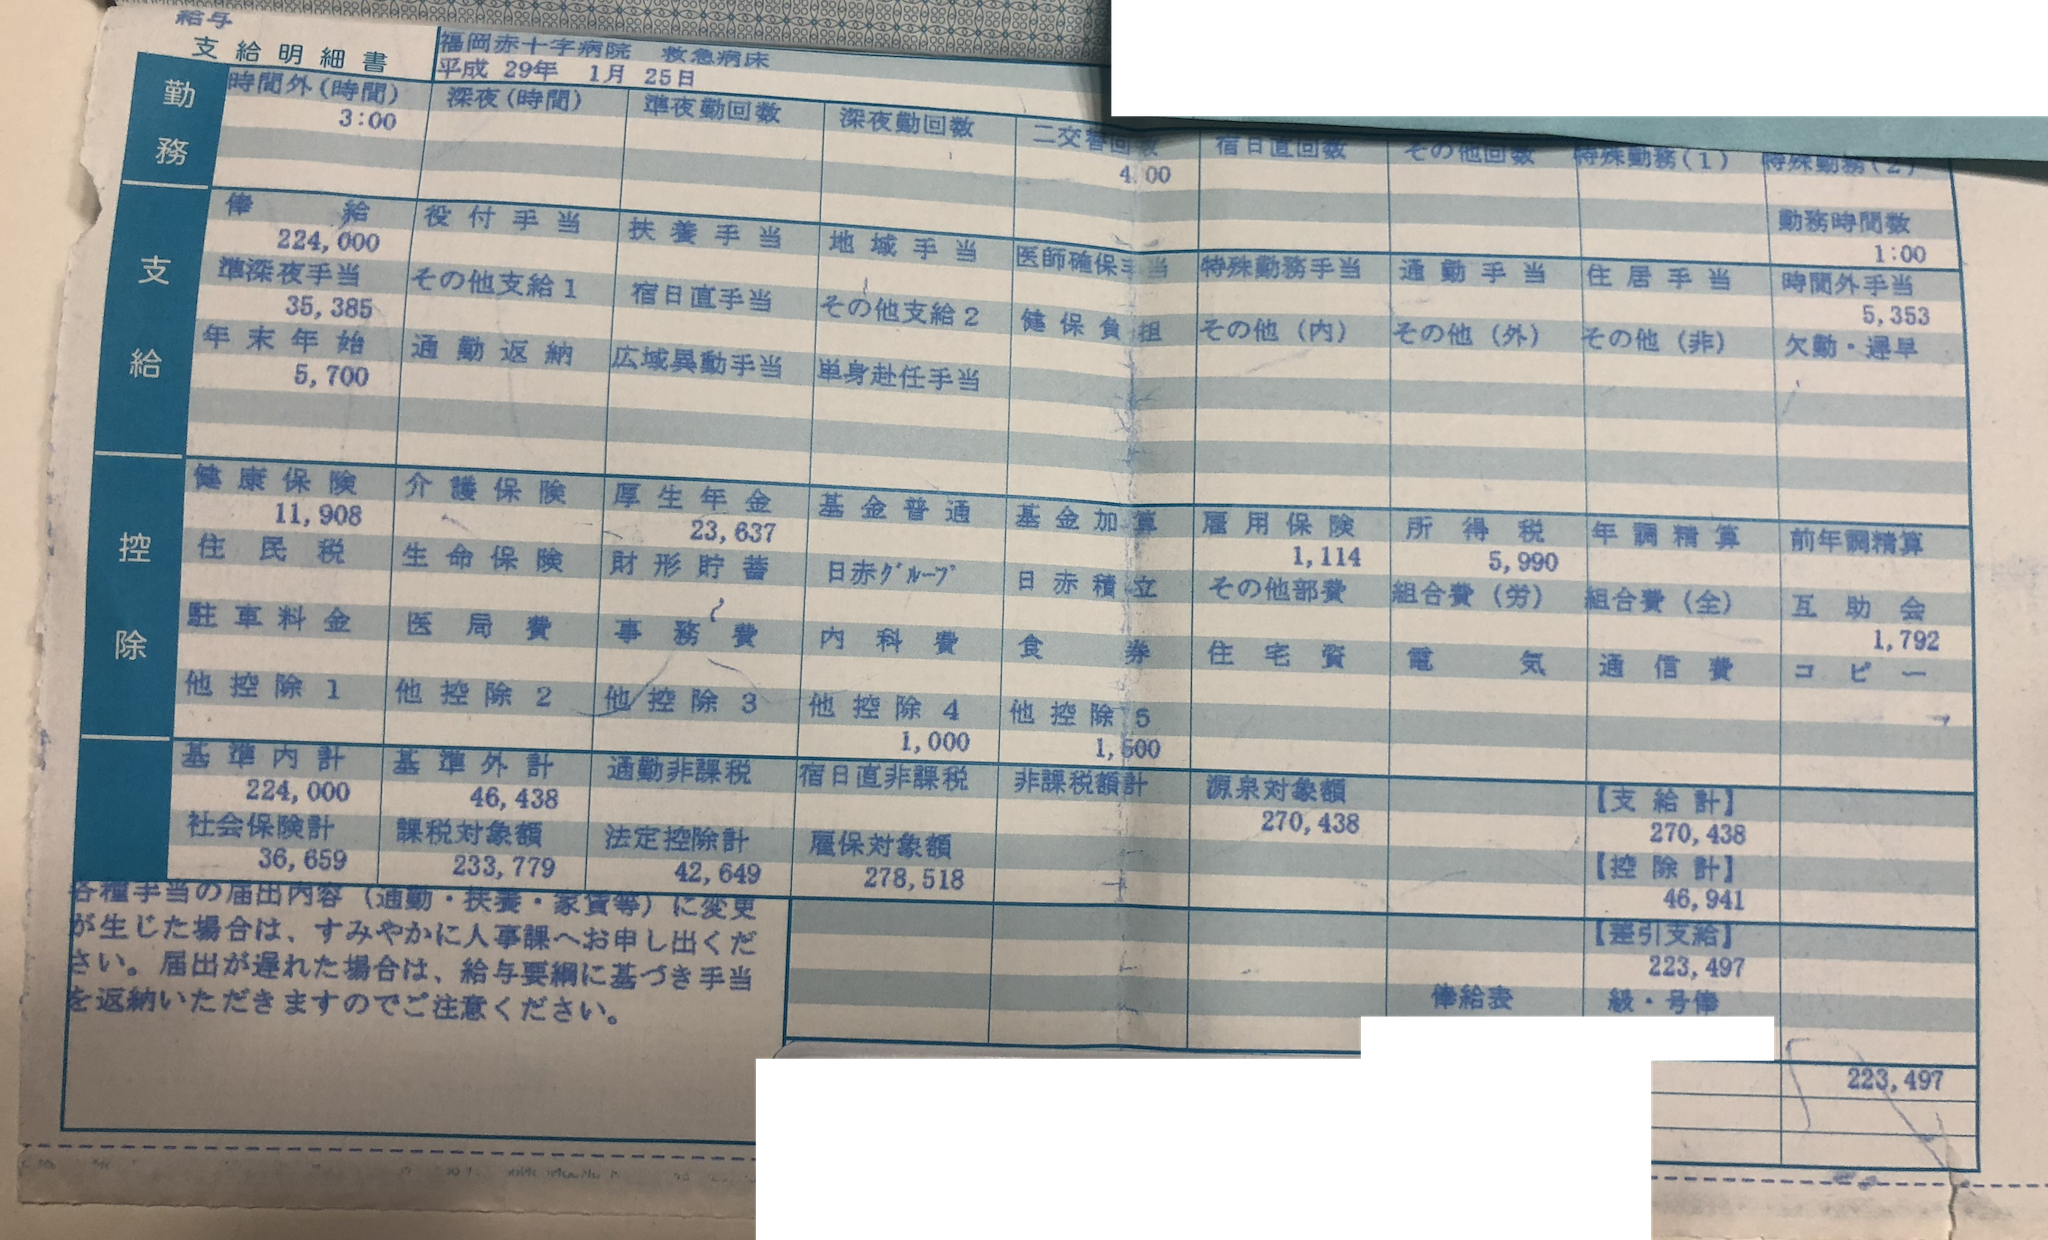 給与
支給明細書
福岡赤十字病院 救急病床
平成 29年 1月 25日
勤務
時間外(時間) 深夜(時間) 準夜勤回数 深夜勤回数 二交替回数 宿日直回数 その他回数 特殊勤務(1) 特殊勤務(2)
3:00 4.00
勤務時間数
1:00
支給
俸給 役付手当 扶養手当 地域手当 医師確保手当 特殊勤務手当 通勤手当 住居手当 時間外手当
224,000 5,353
準深夜手当 その他支給1 宿日直手当 その他支給2 健保負担 その他(内) その他(外) その他(非) 欠勤・遅早
35,385
年末年始 通勤返納 広域異動手当 単身赴任手当
5,700
控除
健康保険 介護保険 厚生年金 基金普通 基金加算 雇用保険 所得税 年調精算 前年調精算
11,908 23,637 1,114 5,990
住民税 生命保険 財形貯蓄 日赤グループ 日赤積立 その他部費 組合費(労) 組合費(全) 互助会
1,792
駐車料金 医局費 事務費 内科費 食券 住宅費 電気 通信費 コピー
他控除1 他控除2 他控除3 他控除4 他控除5
1,000 1,500
基準内計 基準外計 通勤非課税 宿日直非課税 非課税額計 源泉対象額 【支給計】
224,000 46,438 270,438 270,438
社会保険計 課税対象額 法定控除計 雇保対象額 【控除計】
36,659 233,779 42,649 278,518 46,941
【差引支給】
223,497
俸給表 級・号俸
各種手当の届出内容(通勤・扶養・家賃等)に変更
が生じた場合は、すみやかに人事課へお申し出くだ
さい。届出が遅れた場合は、給与要綱に基づき手当
を返納いただきますのでご注意ください。
223,497